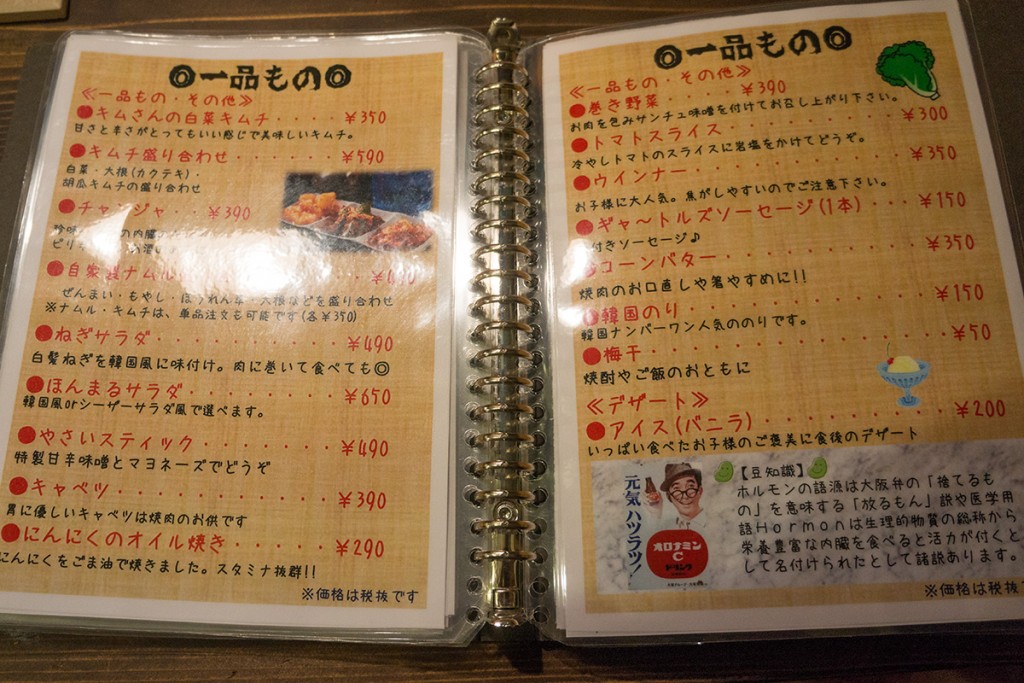 ◎一品もの◎
≪一品もの・その他≫
●キムさんの白菜キムチ・・・・¥350
甘さと辛さがとってもいい感じで美味しいキムチ。
●キムチ盛り合わせ・・・・・・¥590
白菜・大根(カクテキ)・
胡瓜キムチの盛り合わせ
●チャンジャ・・¥390
珍味 の内臓
ピリ
●自家製ナムル
ぜんまい・もやし・ほうれん草・大根などを盛り合わせ
※ナムル・キムチは、単品注文も可能です(各¥350)
●ねぎサラダ・・・・・・・・・・¥490
白髪ねぎを韓国風に味付け。肉に巻いて食べても◎
●ほんまるサラダ・・・・・・・・¥650
韓国風orシーザーサラダ風で選べます。
●やさいスティック・・・・・・・¥490
特製甘辛味噌とマヨネーズでどうぞ
●キャベツ・・・・・・・・・・・¥390
胃に優しいキャベツは焼肉のお供です
●にんにくのオイル焼き・・・・・¥290
にんにくをごま油で焼きました。スタミナ抜群!!
※価格は税抜です
◎一品もの◎
≪一品もの・その他≫
●巻き野菜・・・・¥390
お肉を包みサンチュ味噌を付けてお召し上がり下さい。
●トマトスライス・・・・・・・・¥300
冷やしトマトのスライスに岩塩をかけてどうぞ。
●ウインナー・・・・・・・・・・¥350
お子様に大人気。焦がしやすいのでご注意下さい。
●ギャ〜トルズソーセージ(1本)・・¥150
付きソーセージ♪
●コーンバター・・・・・・・・・¥350
焼肉のお口直しや箸やすめに!!
●韓国のり・・・・・・・・・・・¥150
韓国ナンバーワン人気ののりです。
●梅干・・・・・・・・・・・・・¥50
焼酎やご飯のおともに
≪デザート≫
●アイス(バニラ)・・・・・・・・¥200
いっぱい食べたお子様のご褒美に食後のデザート
元気ハツラツ!
オロナミン
C
ドリンク
【豆知識】
ホルモンの語源は大阪弁の「捨てるも
の」を意味する「放るもん」説や医学用
語Hormonは生理的物質の総称から
栄養豊富な内臓を食べると活力が付くと
して名付けられたとして諸説あります。
※価格は税抜